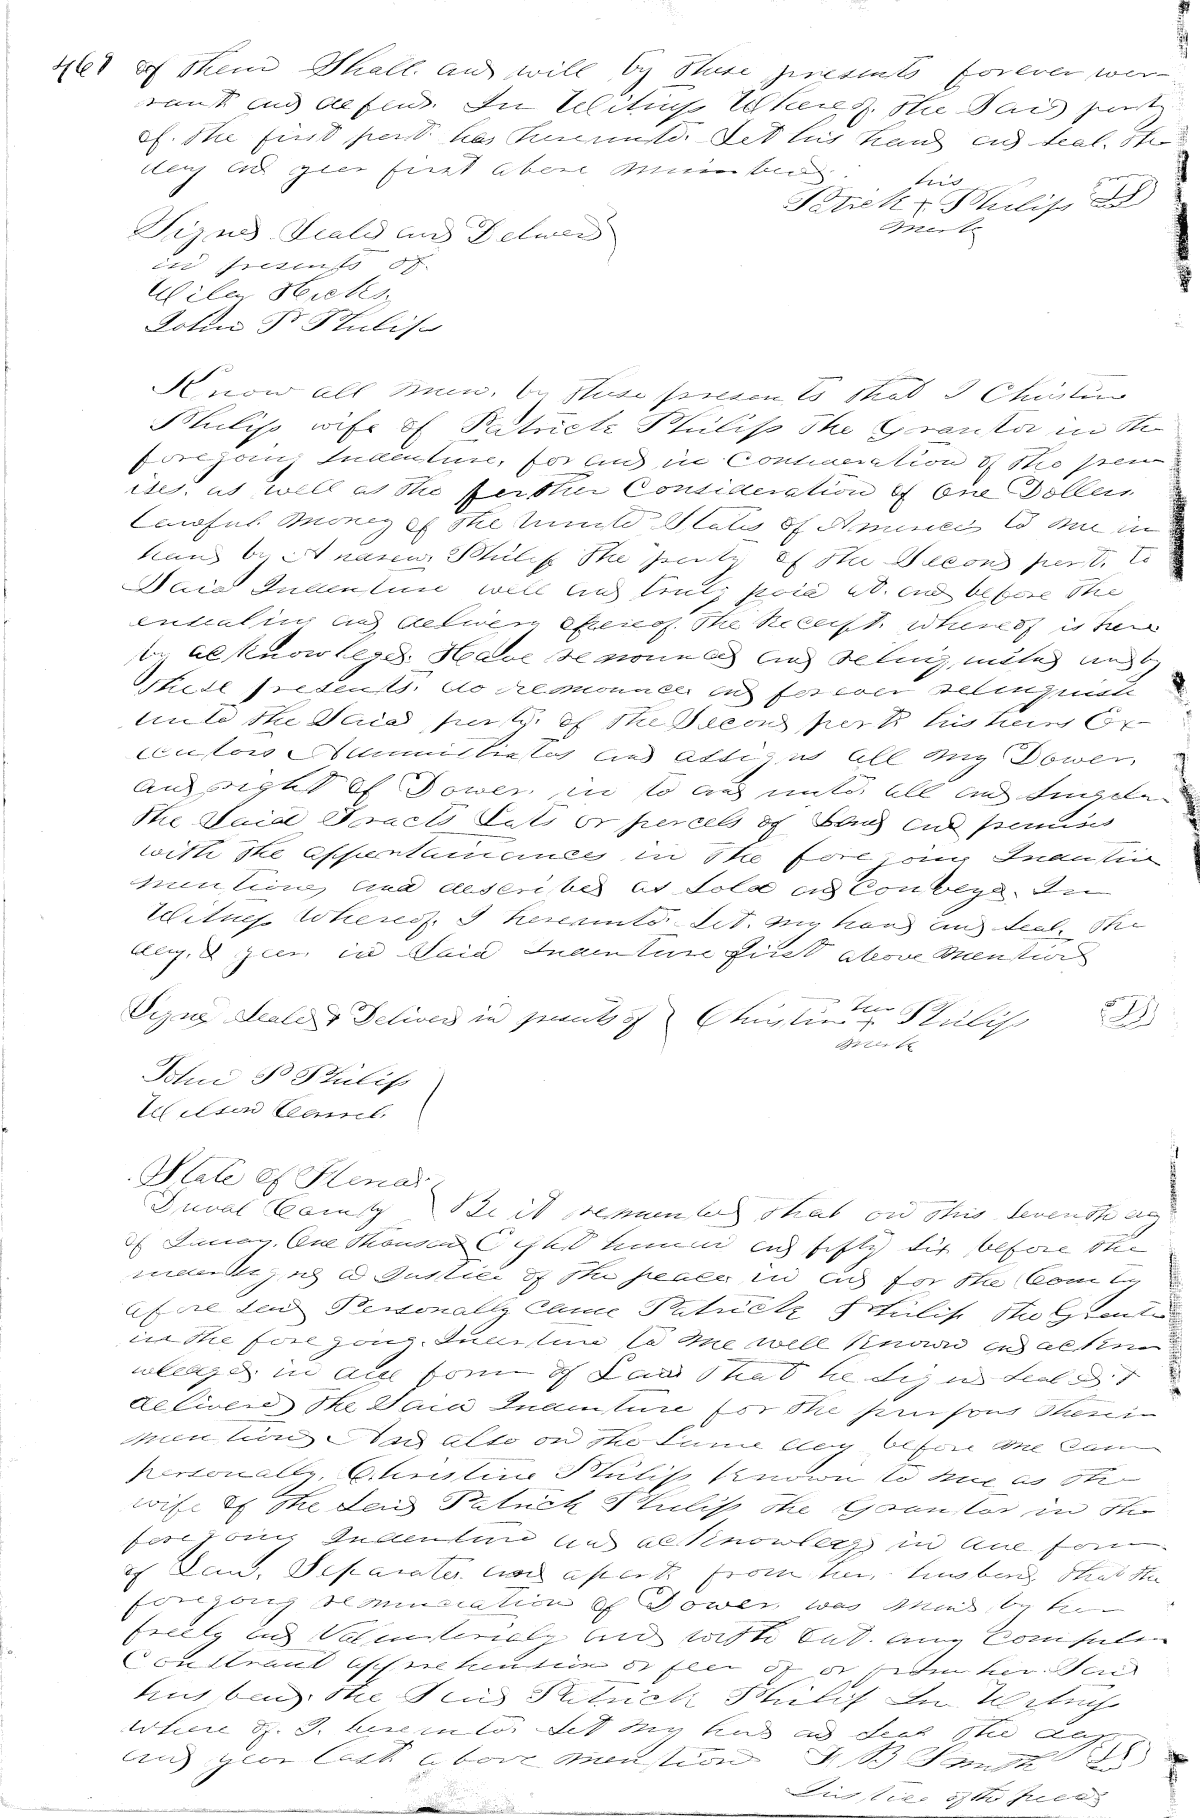 468 of them Shall and will by these presents forever war-
rant and defend. In Witness Whereof the Said party
of the first part has hereunto Set his hand and seal the
day and year first above
his
Patrick + Philips LS
mark
Signed Sealed and Delivered
in presents of
Wiley Hicks
John P Philips
Know all men, by these presents that I Christine
Philips wife of Patrick Philips the Grantor in the
foregoing Indenture, for and in Consideration of the prem
ises, as well as the further Consideration of One Dollar
Lawful Money of the United States of America to me in
hand by Andrew Philips the party of the Second part to
Said Indenture well and truly paid at and before the
ensealing and delivery thereof the Receipt whereof is here
by acknowledged. Have renounced and relinquished and by
these presents do renounce and forever relinquish
unto the Said party of the Second part his heirs Ex-
ecutors Administrators and assigns all my Dower
and right of Dower in to and unto all and Singular
the Said Tracts Lots or parcels of Land and premises
with the appurtainances in the foregoing Indenture
mentioned and described as Sold and Conveyed. In
Witness Whereof I hereunto Set my hand and Seal the
day & year in Said Indenture first above Mentioned
Signed Sealed & Delivered in presents of Christine her + Philips LS
mark
John P Philips
Wilson
State of Florida
Duval County Be it remembered that on this Seventh day
of One thousand Eight hundred and fifty Six before the
undersigned a Justice of the peace in and for the County
aforesaid Personally Came Patrick Philips the Grantor
in the foregoing Indenture to me well Known and ackno
wledged in due form of Law that he Signed Sealed &
delivered the Said Indenture for the purpous therein
mentioned And also on the Same day before me Came
personally Christine Philips Known to me as the
wife of the Said Patrick Philips the Grantor in the
foregoing Indenture and acknowledged in due form
of Law, Separate and apart from her husband that the
foregoing renunciation of Dower was made by her
freely and Voluntarialy and with out any Compulsion
Constraint apprehension or fear of or from her Said
husband the Said Patrick Philips In Witness
where of I hereunto Set my hand and Seal the day
and year last above mentioned F B Smith LS
Justice of the peace